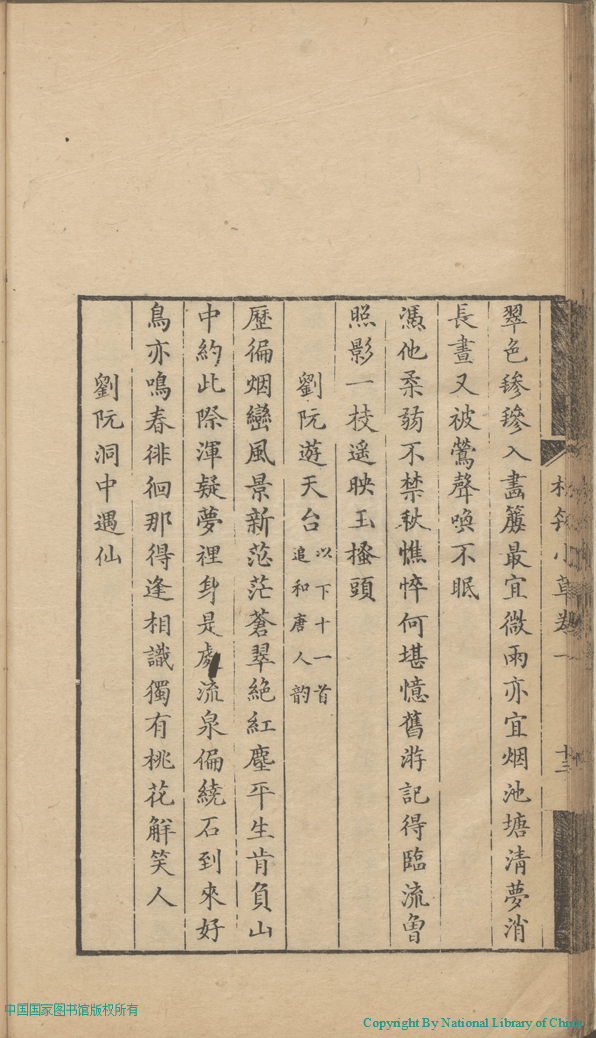 小草卷一 十三
翠色毿毿入畵簾最宜微雨亦宜烟池塘清夢消
長晝又被鶯聲喚不眠
憑他柔弱不禁秋憔悴何堪憶舊游記得臨流曾
照影一枝遥映玉搔頭
劉阮遊天台 以下十一首
追和唐人韵
歷徧烟巒風景新茫茫蒼翠絶紅塵平生肯負山
中約此際渾疑夢裡身是處流泉偏繞石到來好
鳥亦鳴春徘徊那得逢相識獨有桃花觧笑人
劉阮洞中遇仙
中国国家图书馆版权所有
Copyright By National Library of China